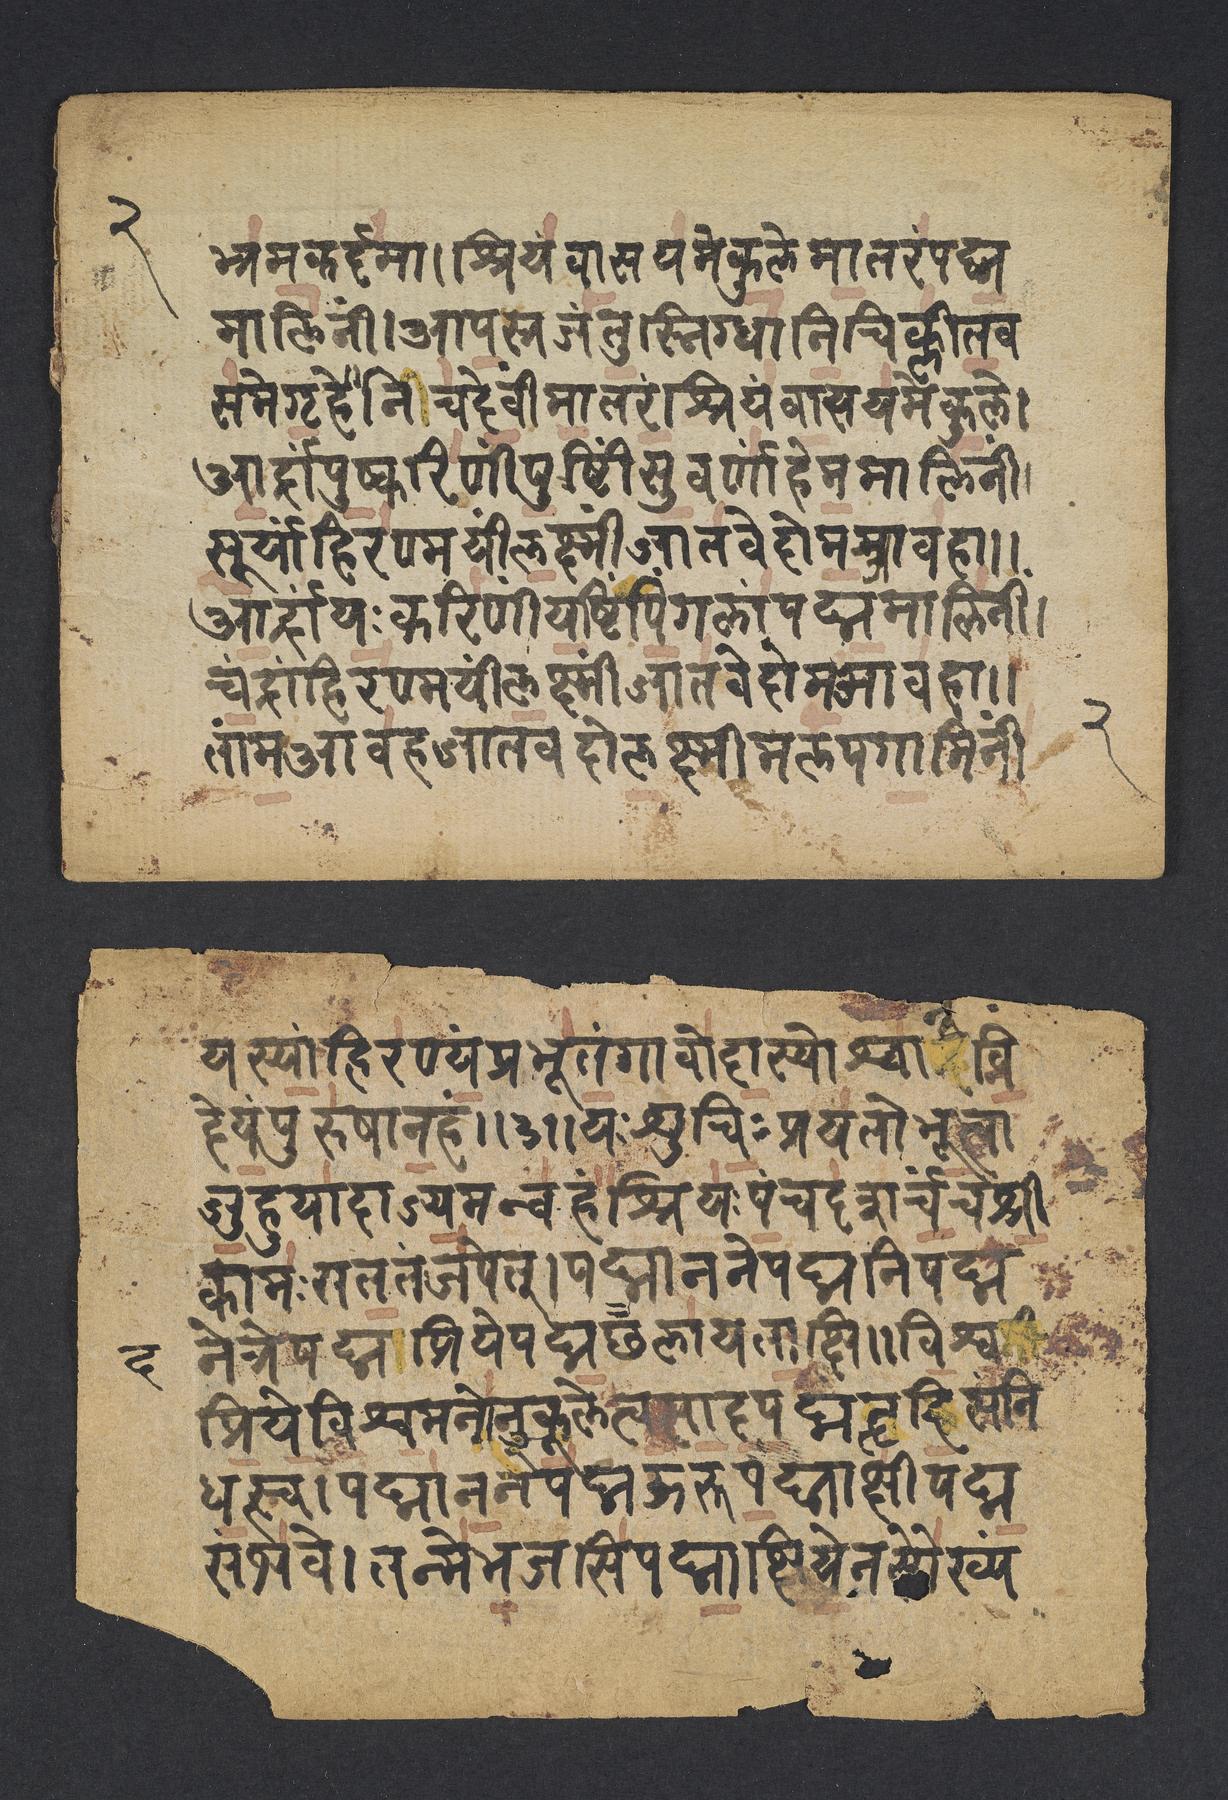 २
भ्रमकर्दमा।श्रियंवासयमेकुलेमातरंपद्म
मालिनीं।आपस्रजंतुस्निग्धानिचिक्लीतव
समेगृहे॥निचदेवींमातरंश्रियंवासयमेकुले।
आर्द्रांपुष्करिणींपुष्टिंसुवर्णांहेममालिनीं।
सूर्यांहिरण्मयींलक्ष्मींजातवेदोममावहा॥
आर्द्रांयःकरिणींयष्टिंपिंगलांपद्ममालिनीं।
चंद्रांहिरण्मयींलक्ष्मींजातवेदोममआवहा॥
२
तांमआवहजातवदोलक्ष्मीमलपगामिनीं
यस्यांहिरण्यंप्रभूतंगावोदास्योश्वा विं
देयंपुरुषानहं॥३॥यःश्शुचिःप्रयतोभूत्वा
जुहुयादाज्यमन्वहंश्रियःपंचदशर्चंचश्री
कामःसततंजपेत्।पद्माननेपद्मनिपद्म
नेत्रेपद्मप्रियेपद्मछलायताक्षि॥विश्व
द
प्रियेविश्वमनोनुकूलेत्व पादपद्मंहृदिसंनि
धस्त्व।पद्माननेपद्मऊरूपद्माक्षीपद्म
संभवे।तन्मेभजसिपद्माक्षियेनसौख्यं